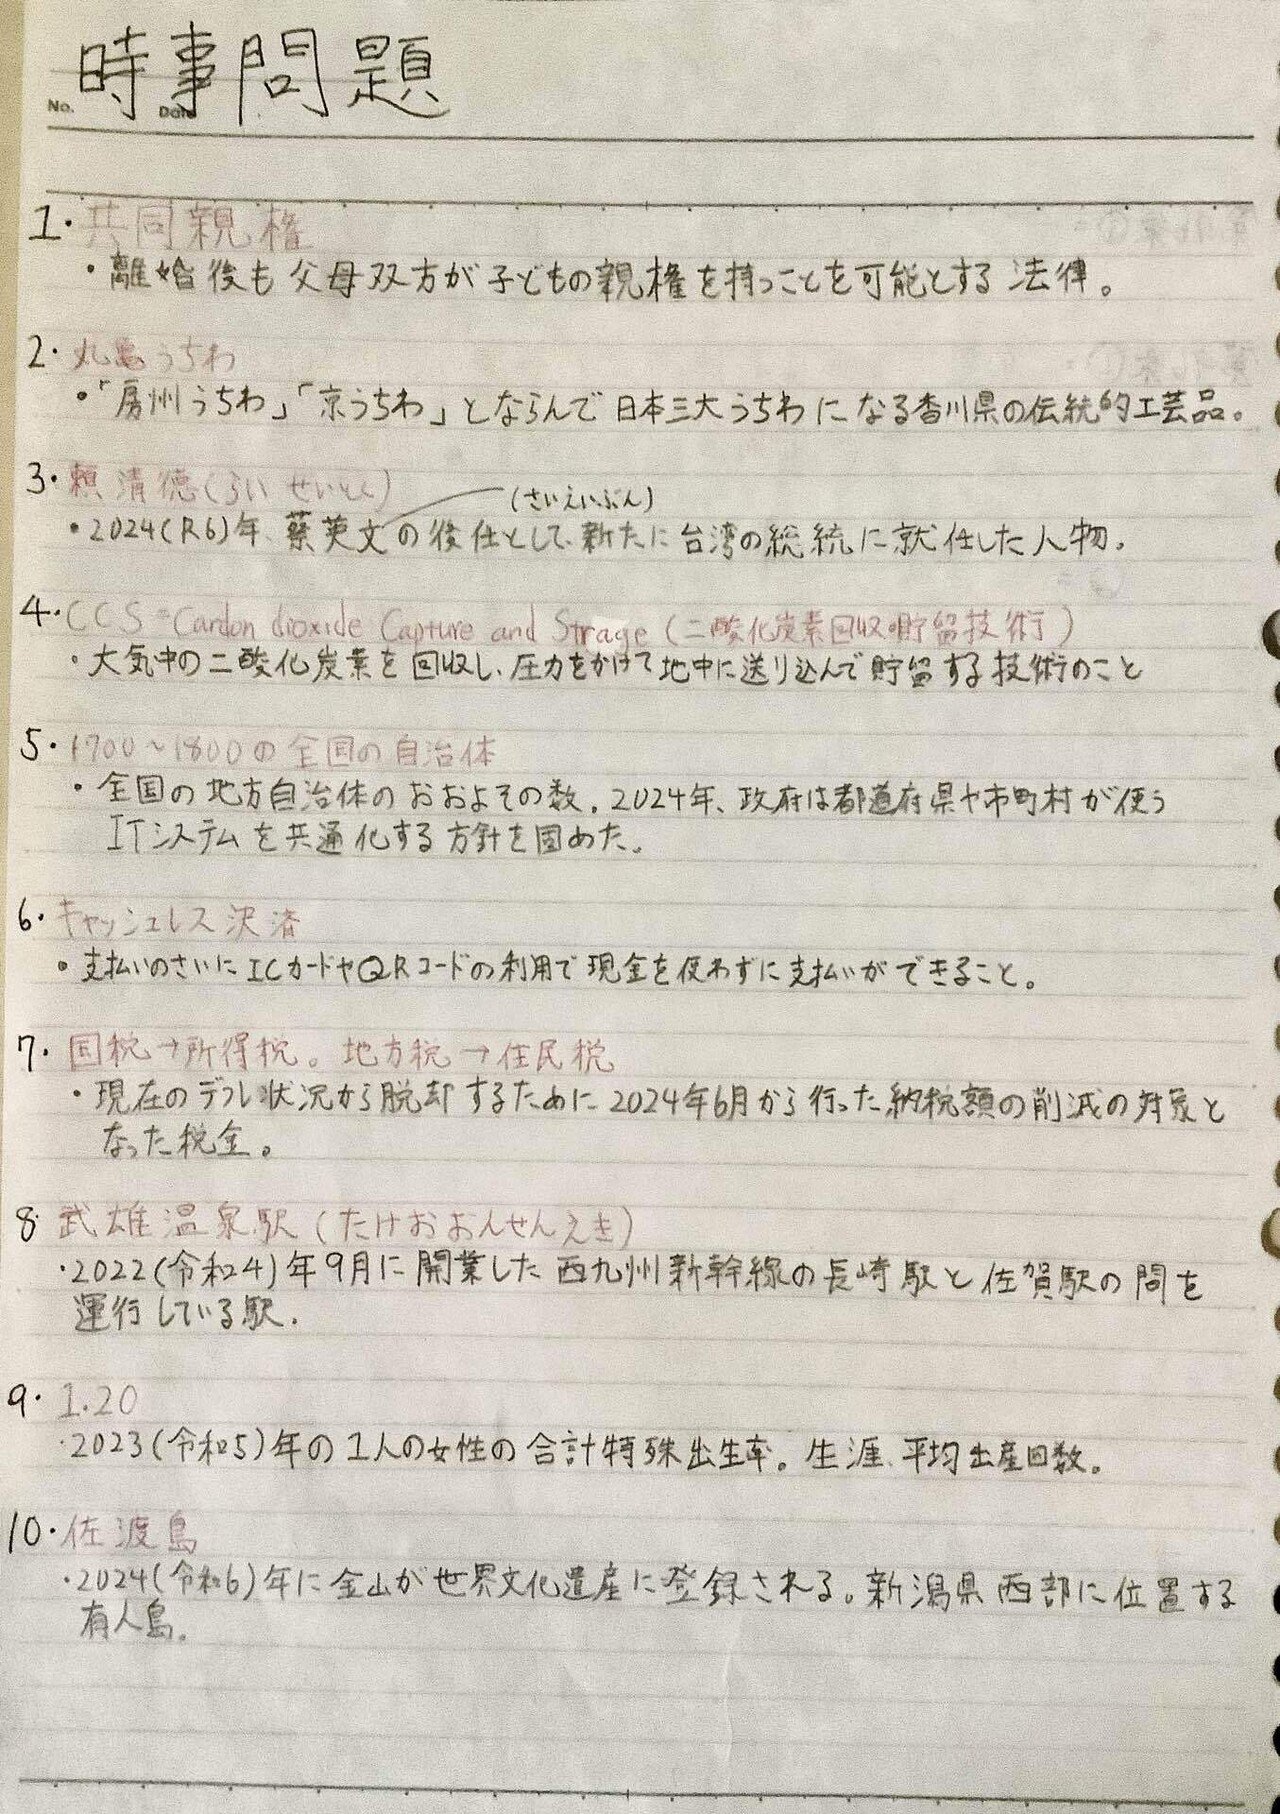 時事問題
No.
Date
1. 共同親権
・離婚後も父母双方が子どもの親権を持つことを可能とする法律。
2. 丸亀うちわ
・「房州うちわ」「京うちわ」とならんで日本三大うちわになる香川県の伝統的工芸品。
3. 頼清徳(らいせいとく)
(さいえいぶん)
・2024(R6)年、蔡英文の後任として、新たに台湾の総統に就任した人物。
4. CCS=Cardon dioxide Capture and Strage (二酸化炭素回収・貯留技術)
・大気中の二酸化炭素を回収し、圧力をかけて地中に送り込んで貯留する技術のこと
5. 1700〜1800の全国の自治体
・全国の地方自治体のおおよその数。2024年、政府は都道府県や市町村が使う
ITシステムを共通化する方針を固めた。
6. キャッシュレス決済
・支払いのさいにICカードやQRコードの利用で現金を使わずに支払いができること。
7. 国税→所得税。地方税→住民税
・現在のデフレ状況から脱却するために2024年6月から行った納税額の削減の対象と
なった税金。
8 武雄温泉駅(たけおおんせんえき)
・2022(令和4)年9月に開業した西九州新幹線の長崎駅と佐賀駅の間を
運行している駅.
9. 1.20
・2023(令和5)年の1人の女性の合計特殊出生率。生涯、平均出産回数。
10. 佐渡島
・2024(令和6)年に金山が世界文化遺産に登録される。新潟県西部に位置する
有人島。